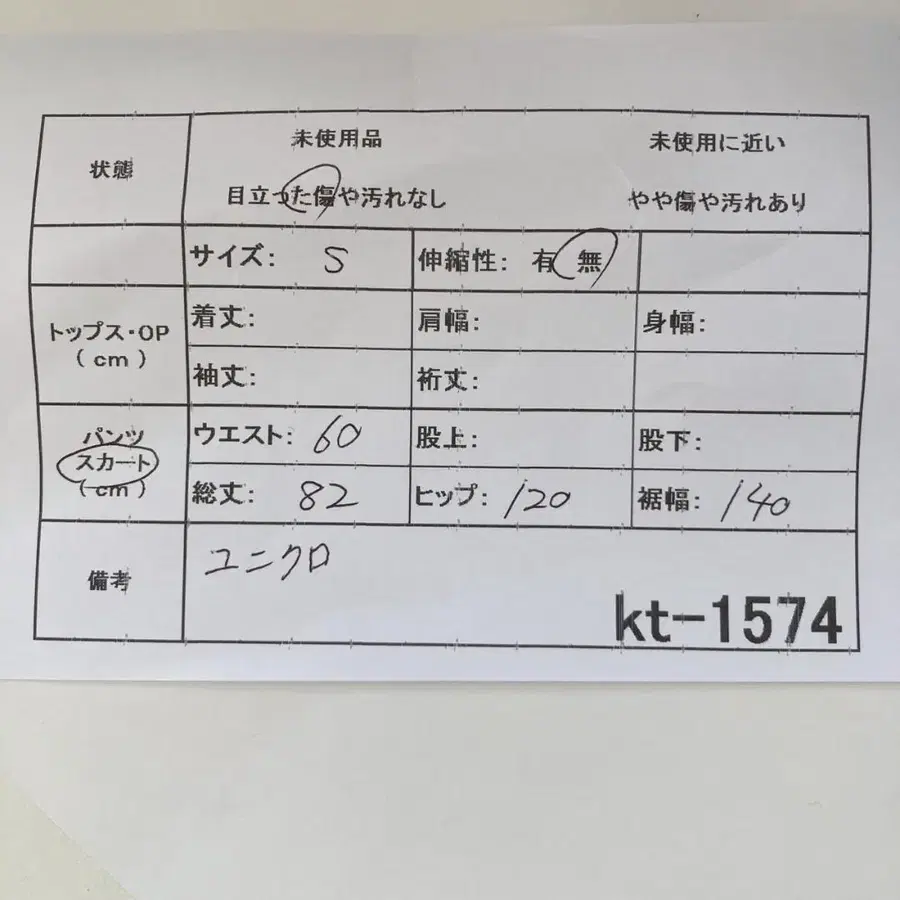 状態 未使用品 未使用に近い
目立った傷や汚れなし やや傷や汚れあり
サイズ: S 伸縮性: 有 無
トップス・OP
(cm)
着丈: 肩幅: 身幅:
袖丈: 裄丈:
パンツ
スカート
(cm)
ウエスト: 60 股上: 股下:
総丈: 82 ヒップ: 120 裾幅: 140
備考 ユニクロ
kt-1574